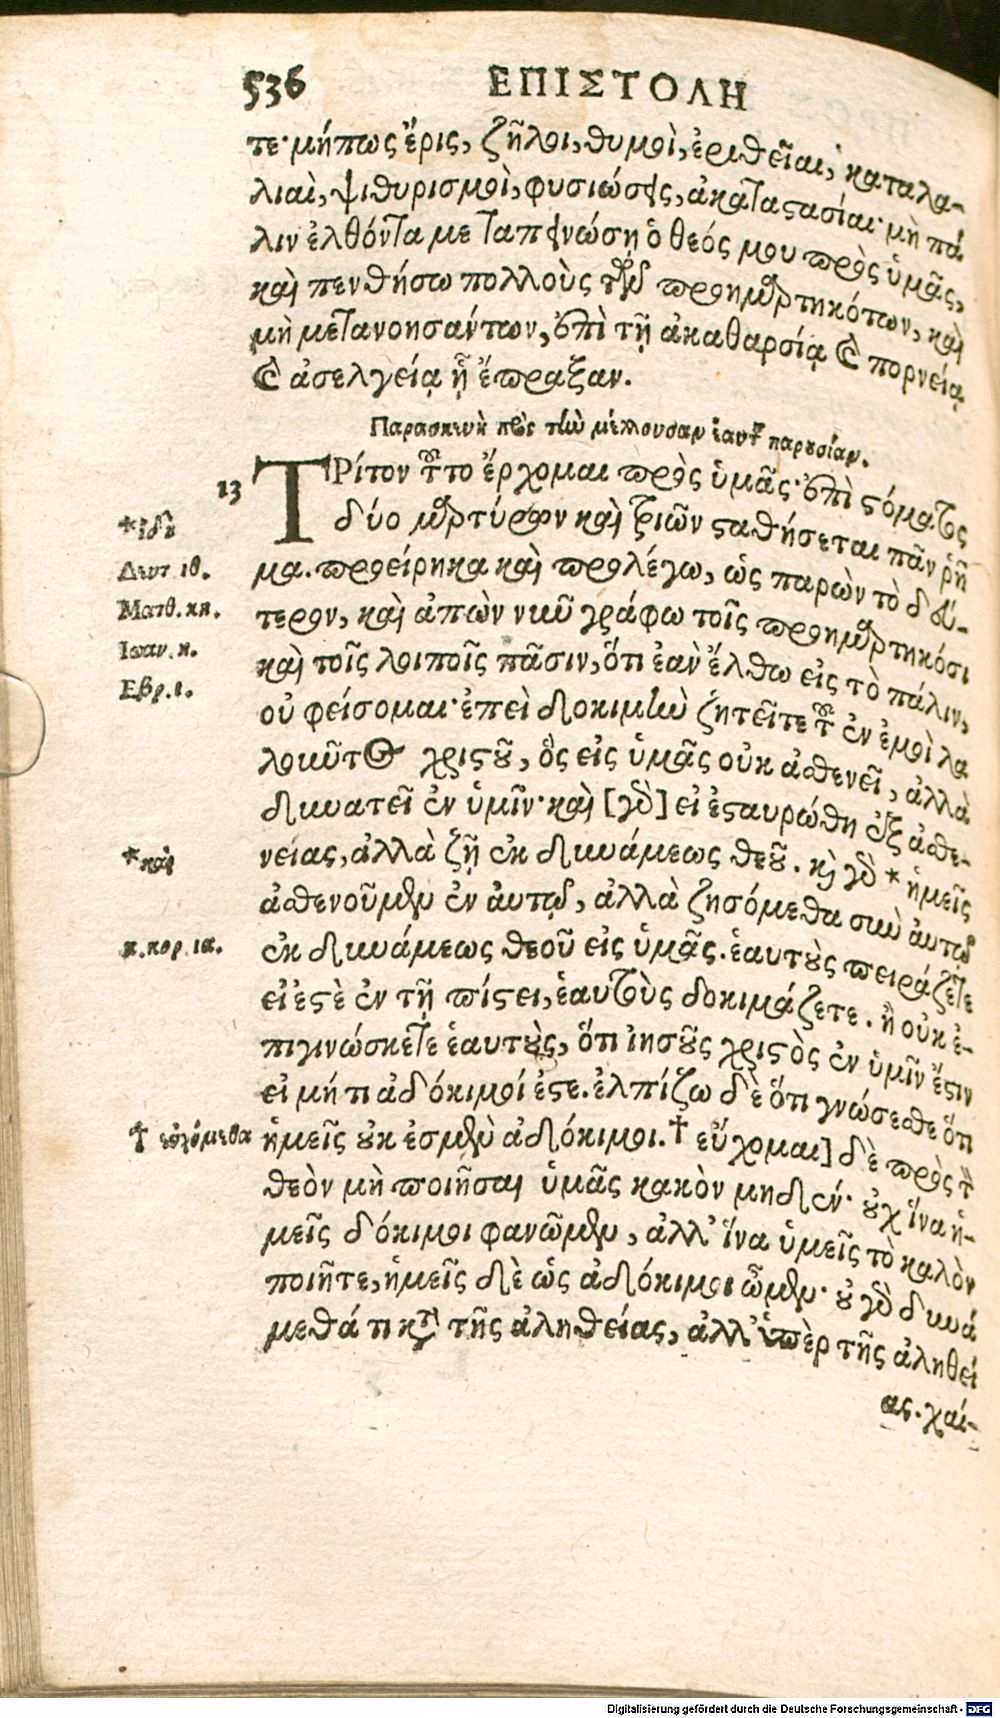 536 ΕΠΙΣΤΟΛΗ
τε· μήπως ἔρις, ζῆλοι, θυμοὶ, ἐριθεῖαι, καταλα-
λιαὶ, ψιθυρισμοὶ, φυσιώσεις, ἀκαταστασίαι· μὴ πά
λιν ἐλθόντα με ταπεινώσῃ ὁ θεός μου πρὸς ὑμᾶς,
καὶ πενθήσω πολλοὺς τῶν προημαρτηκότων, καὶ
μὴ μετανοησάντων, ἐπὶ τῇ ἀκαθαρσίᾳ καὶ πορνείᾳ
καὶ ἀσελγείᾳ ᾗ ἔπραξαν.
Παρασκευὴ πρὸς τὴν μέλλουσαν ἑαυτοῦ παρουσίαν.
13 ΤΡίτον τοῦτο ἔρχομαι πρὸς ὑμᾶς· ἐπὶ στόματος
*ἰδοὺ
δύο μαρτύρων καὶ τριῶν σταθήσεται πᾶν ῥῆ
Δευτ. ιθ.
μα. προείρηκα καὶ προλέγω, ὡς παρὼν τὸ δεύ-
Ματθ. κη.
τερον, καὶ ἀπὼν νῦν γράφω τοῖς προημαρτηκόσι
Ιωαν. η.
καὶ τοῖς λοιποῖς πᾶσιν, ὅτι ἐὰν ἔλθω εἰς τὸ πάλιν,
Εβρ. ι.
οὐ φείσομαι· ἐπεὶ δοκιμὴν ζητεῖτε τοῦ ἐν ἐμοὶ λα
λοῦντος χριστοῦ, ὃς εἰς ὑμᾶς οὐκ ἀσθενεῖ, ἀλλὰ
δυνατεῖ ἐν ὑμῖν· καὶ [γὰρ] εἰ ἐσταυρώθη ἐξ ἀσθε-
*καὶ
νείας, ἀλλὰ ζῇ ἐκ δυνάμεως θεοῦ. καὶ γὰρ * ἡμεῖς
ἀσθενοῦμεν ἐν ἀυτῷ, ἀλλὰ ζησόμεθα σὺν ἀυτῷ
κ. κορ. ια.
ἐκ δυνάμεως θεοῦ εἰς ὑμᾶς. ἑαυτοὺς πειράζετε
εἰ ἐστὲ ἐν τῇ πίστει, ἑαυτοὺς δοκιμάζετε. ἢ οὐκ ἐ-
πιγινώσκετε ἑαυτοὺς, ὅτι ἰησοῦς χριστὸς ἐν ὑμῖν ἔστιν
εἰ μή τι ἀδόκιμοί ἐστε. ἐλπίζω δὲ ὅτι γνώσεσθε ὅτι
† εὐχόμεθα
ἡμεῖς οὐκ ἐσμὲν ἀδόκιμοι. † εὔχομαι] δὲ πρὸς τὸν
θεὸν μὴ ποιῆσαι ὑμᾶς κακὸν μηδέν· οὐχ ἵνα ἡ-
μεῖς δόκιμοι φανῶμεν, ἀλλ' ἵνα ὑμεῖς τὸ καλὸν
ποιῆτε, ἡμεῖς δὲ ὡς ἀδόκιμοι ὦμεν· οὐ γὰρ δυνά
μεθά τι κατὰ τῆς ἀληθείας, ἀλλ' ὑπὲρ τῆς ἀληθεί
ας. χαί-
Digitalisierung gefördert durch die Deutsche Forschungsgemeinschaft - DFG